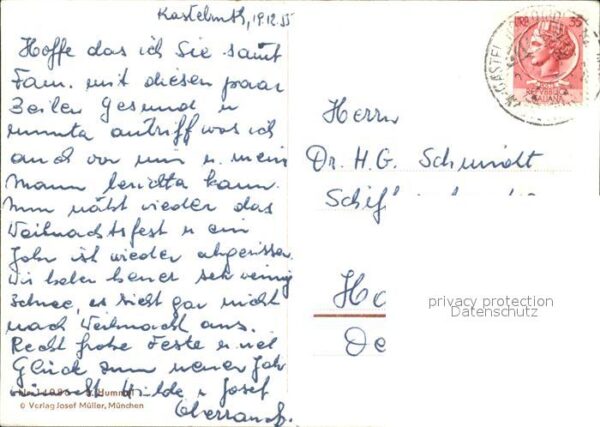 Kastelruth, 19.12.55
Hoffe das ich Sie samt
Fam. mit diesen paar
Zeilen Gesund u
munta antriff was ich
auch von mir u. mein
Mann berichta kann.
Nun naht wieder das
Weihnachtsfest u ein
Jahr ist wieder abgerissen
Wir haben heuer sehr wenig
schnee, es sieht gar nicht
nach Weihnacht aus.
Recht frohe Feste u viel
Glück zum neuen Jahr
Hilde u Josef
Nr. Hummel
© Verlag Josef Müller, München
Herrn
Dr. H.G. Schmidt
Schif
Ha
De
privacy protection
Datenschutz
CASTEL
ITALIANA